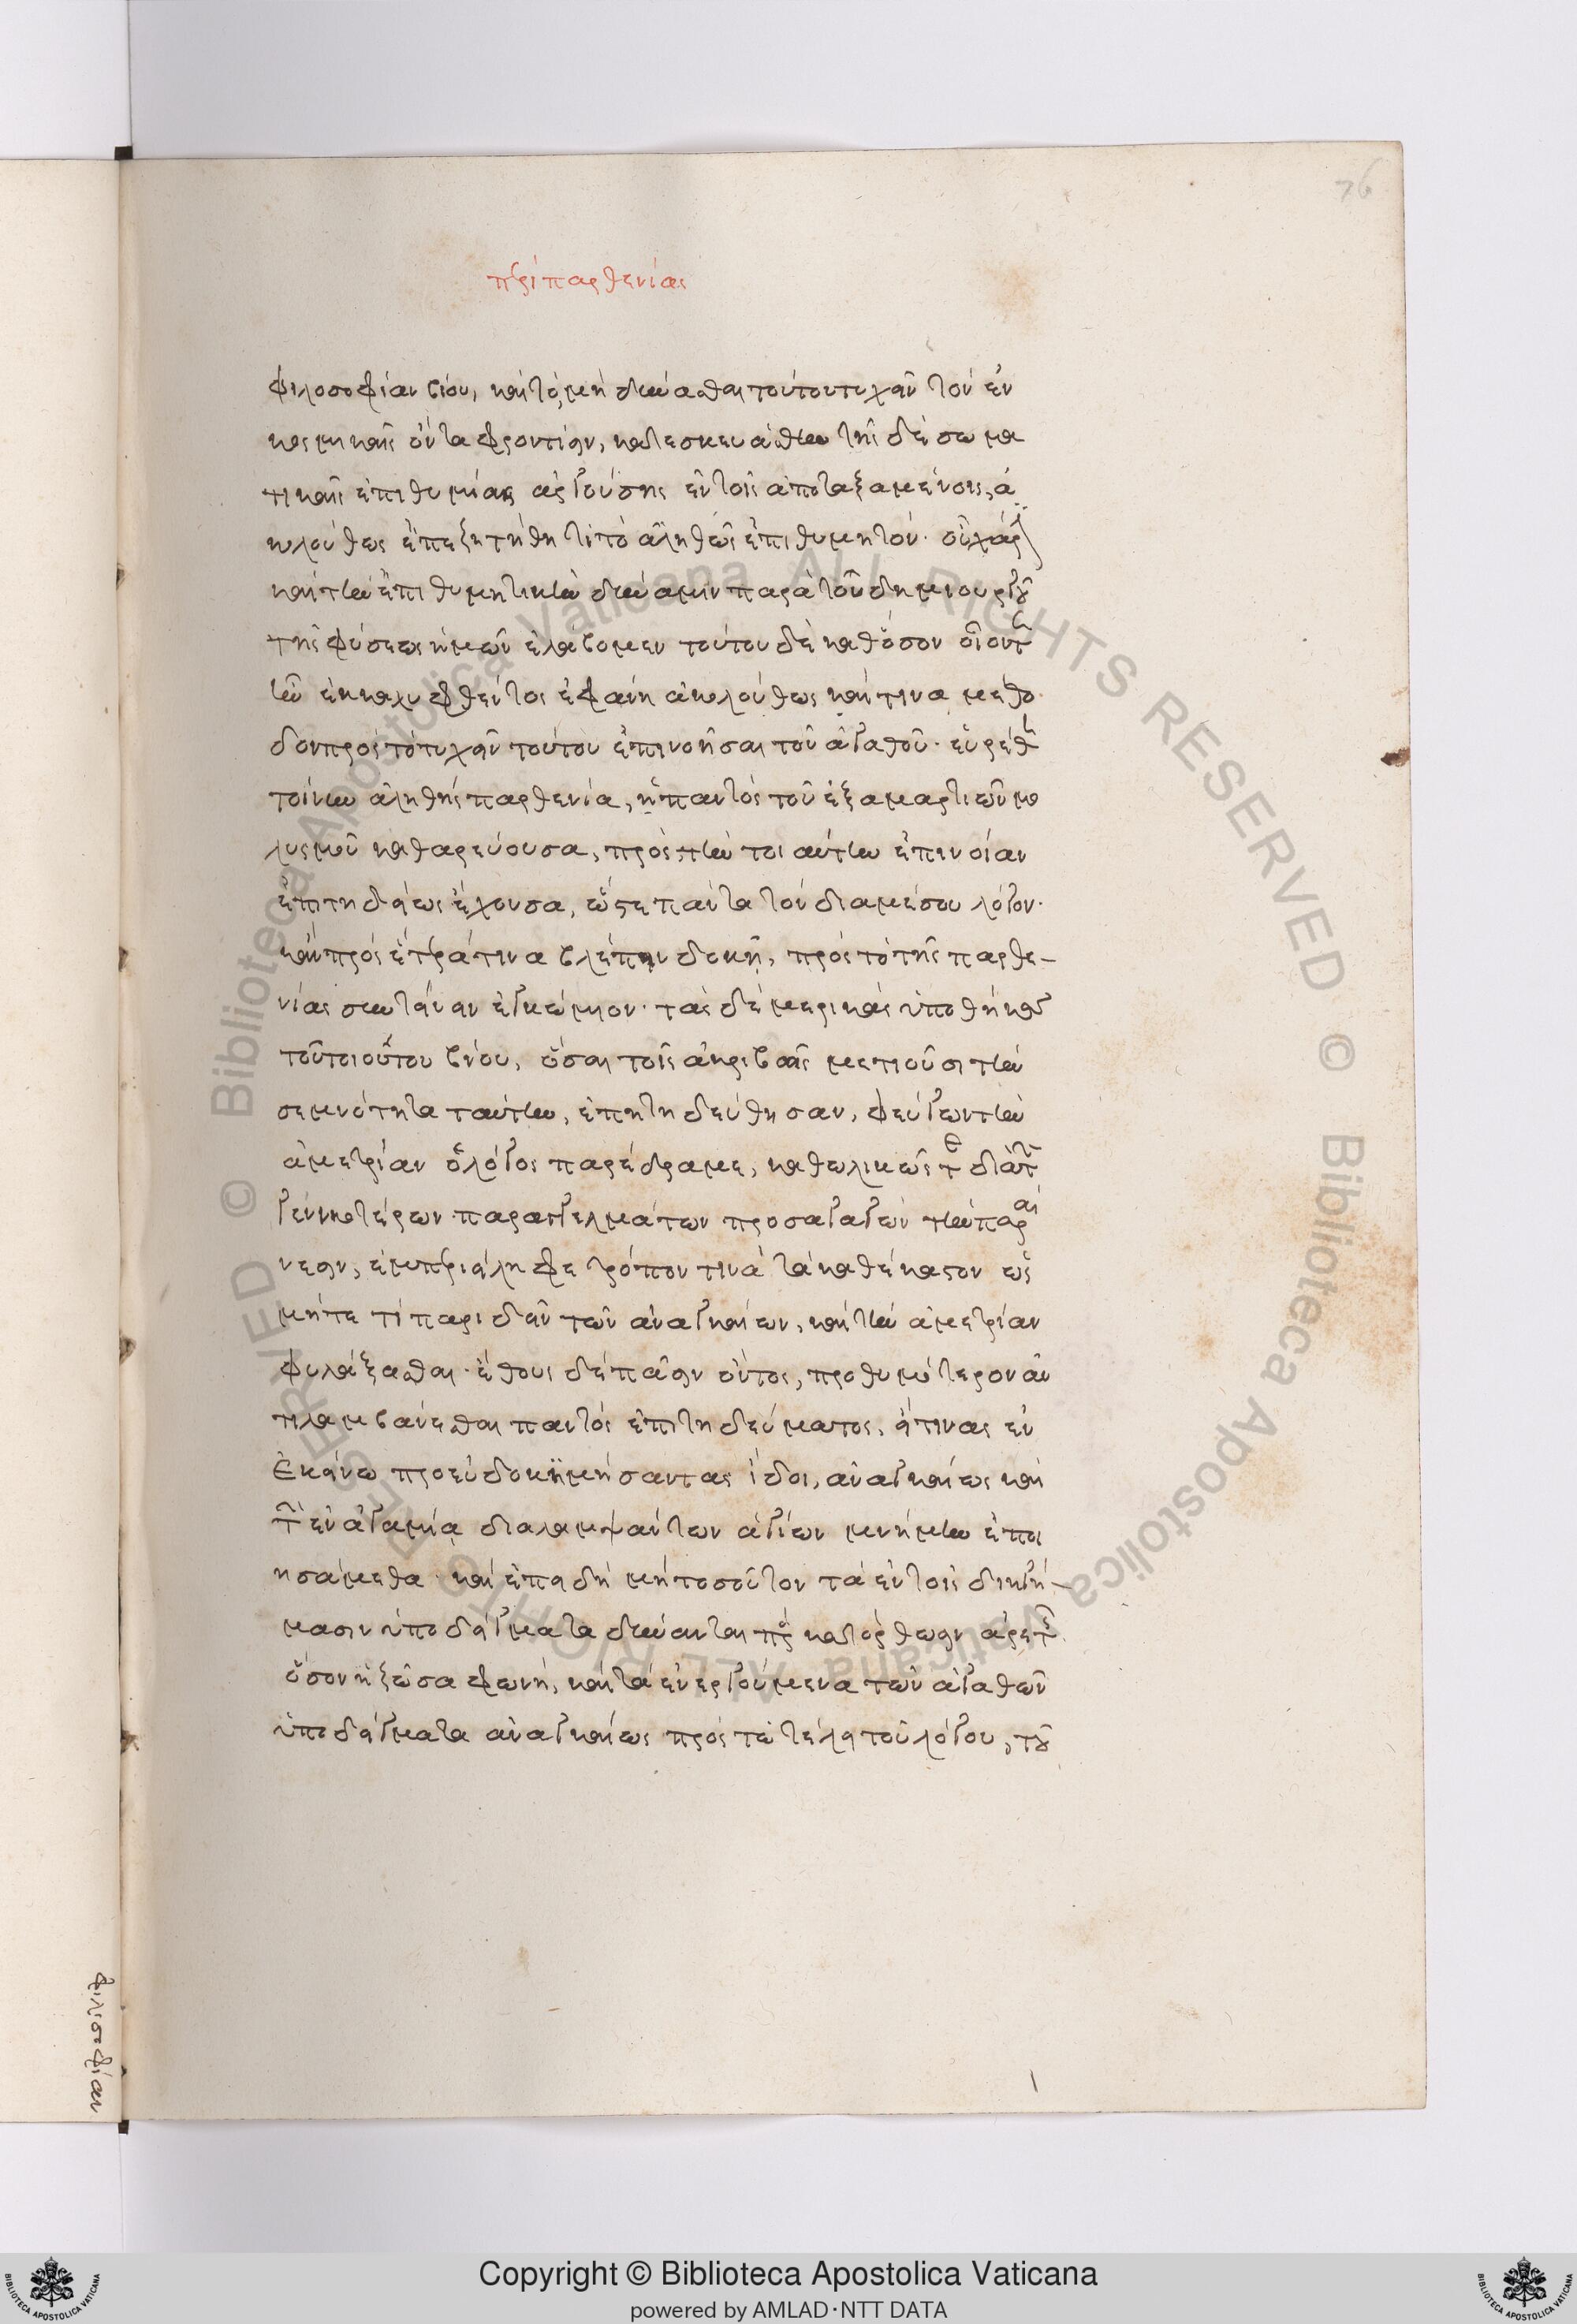 76
περὶ παρθενίας
φιλοσοφίαν βίου, καὶ τὸ μὴ δύνασθαι τούτου τυχεῖν τὸν ἐν
κοσμικαῖς ὄντα φροντίσιν, κατεσκευάσθω τῆς δὲ σωμα
τικῆς ἐπιθυμίας ἀργούσης ἐν τοῖς ἀποταξαμένοις, ἀ
κολούθως ἐπεζητήθη τί τὸ ἀληθῶς ἐπιθυμητόν. οὗ χάριν
καὶ τὴν ἐπιθυμητικὴν δύναμιν παρὰ τοῦ δημιουργοῦ
τῆς φύσεως ἡμῶν ἐλάβομεν τούτου δὲ καθόσον οἷόντε
ἦν ἐκκαλυφθέντος ἐφάνη ἀκολούθως καί τινα μέθο
δον πρὸς τὸ τυχεῖν τούτου ἐπινοῆσαι τοῦ ἀγαθοῦ. εὑρέθη
τοίνυν ἀληθὴς παρθενία, ἡ παντὸς τοῦ ἐξ ἁμαρτιῶν μο
λυσμοῦ καθαρεύουσα, πρὸς τὴν τοιαύτην ἐπίνοιαν
ἐπιτηδείως ἔχουσα, ὥστε πάντα τὸν διαμέσου λόγον.
κἂν πρὸς ἕτερά τινα βλέπειν δοκῇ, πρὸς τὸ τῆς παρθε-
νίας συντείνειν ἐγκώμιον. τὰς δὲ μερικὰς ὑποθήκας
τοῦ τοιούτου βίου, ὅσαι τοῖς ἀκριβῶς μετιοῦσι τὴν
σεμνότητα ταύτην, ἐπητηδεύθησαν, φεύγων τὴν
ἀμετρίαν ὁ λόγος παρέδραμε, καθωλικῶς τε διὰ τῶν
γενικοτέρων παραγγελμάτων προσαγαγὼν τὴν παραί
νεσιν, ἐμπεριείληφε τρόπον τινὰ τὰ καθέκαστον ὡς
μήτε τὶ παριδεῖν τῶν ἀναγκαίων, καὶ τὴν ἀμετρίαν
φυλάξασθαι. ἔθους δὲ πᾶσιν ὄντος, προθυμότερον ἀν
τιλαμβάνεσθαι παντὸς ἐπιτηδεύματος, εἴ τινας ἐν
ἐκείνω προευδοκιμήσαντας ἴδοι, ἀναγκαίως καὶ
τῶν ἐν ἀγαμίᾳ διαλαμψάντων ἁγίων μνήμην ἐποι
ησάμεθα. καὶ ἐπειδὴ μὴ τοσοῦτον τὰ ἐν τοῖς διηγή-
μασιν ὑποδείγματα δύνανται πρὸς κατόρθωσιν ἀρετῆς
ὅσον ἡ ζῶσα φωνή, καὶ τὰ ἐνεργούμενα τῶν ἀγαθῶν
ὑποδείγματα ἀναγκαίως πρὸς τῶ τέλει τοῦ λόγου, τοῦ
φιλοσοφίαν